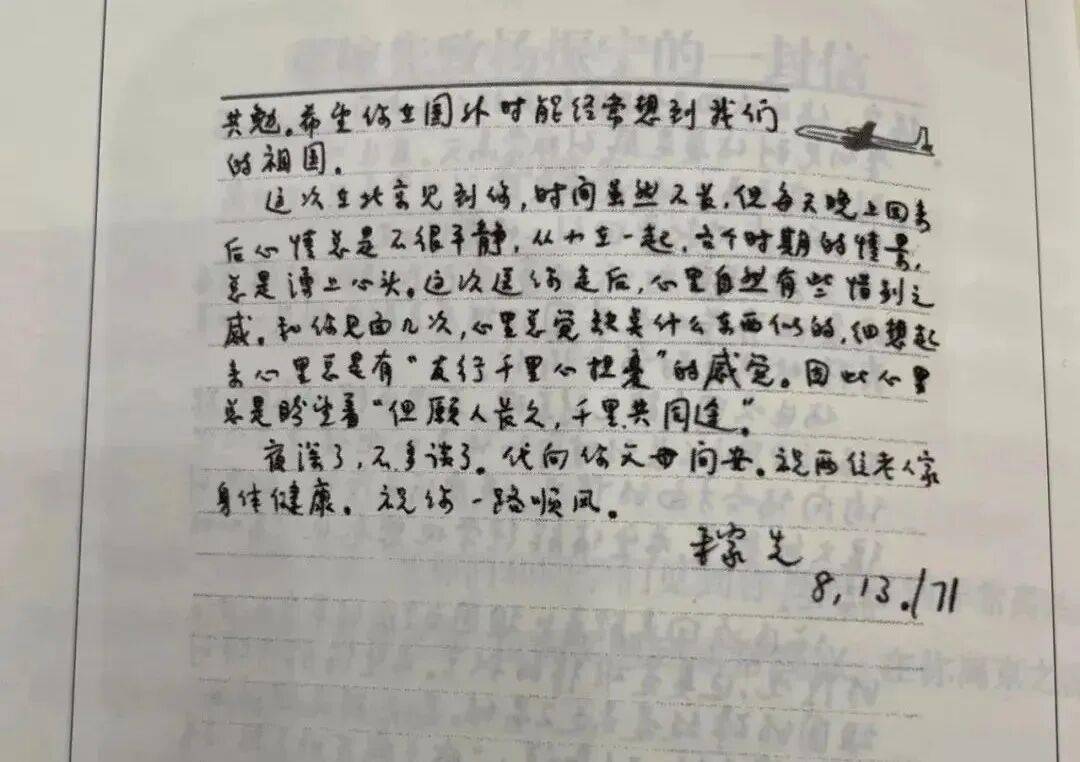 共勉。希望你在国外时能经常想到我们
的祖国。
这次在北京见到你,时间虽然不长,但每天晚上回来
后心情总是不很平静,从小在一起,各个时期的情景,
总是涌上心头。这次送你走后,心里自然有些惜别之
感。和你见面几次,心里总觉缺点什么东西似的,细想起
来心里总是有“友行千里心担憂”的感觉。因此心里
总是盼望着“但愿人长久,千里共同途。”
夜深了,不多谈了。代向你父母问安。祝两位老人家
身体健康。祝你一路顺风。
稼先
8,13./71